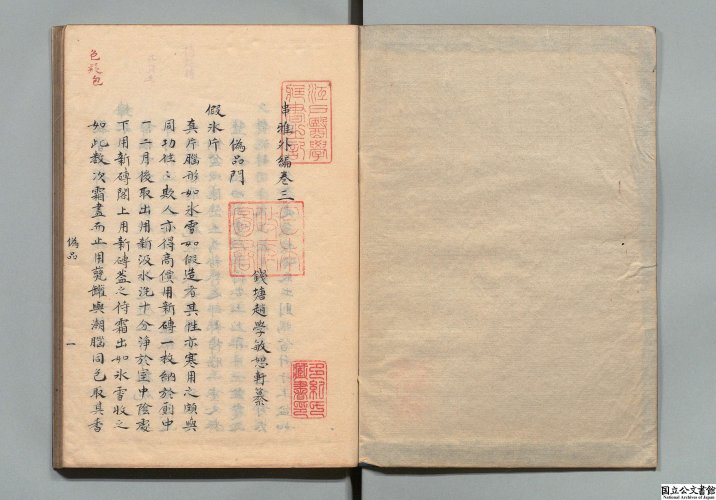 江戸醫學
藏書之記
串雅外編卷三
錢塘趙學敏恕軒纂
多紀氏
藏書印
偽品門
假氷片
真片腦形如氷雪如假造者其性亦寒用之頗與
同功往々欺人亦得高價用新磚一枚納於廁中
一二月後取出用新汲水洗十分淨於室中陰處
下用新磚閣上用新磚蓋之待霜出如氷雪收之
如此数次霜盡而止用甆罐與潮腦同色取其香
色疑包
偽品
一
国立公文書館
National Archives of Japan